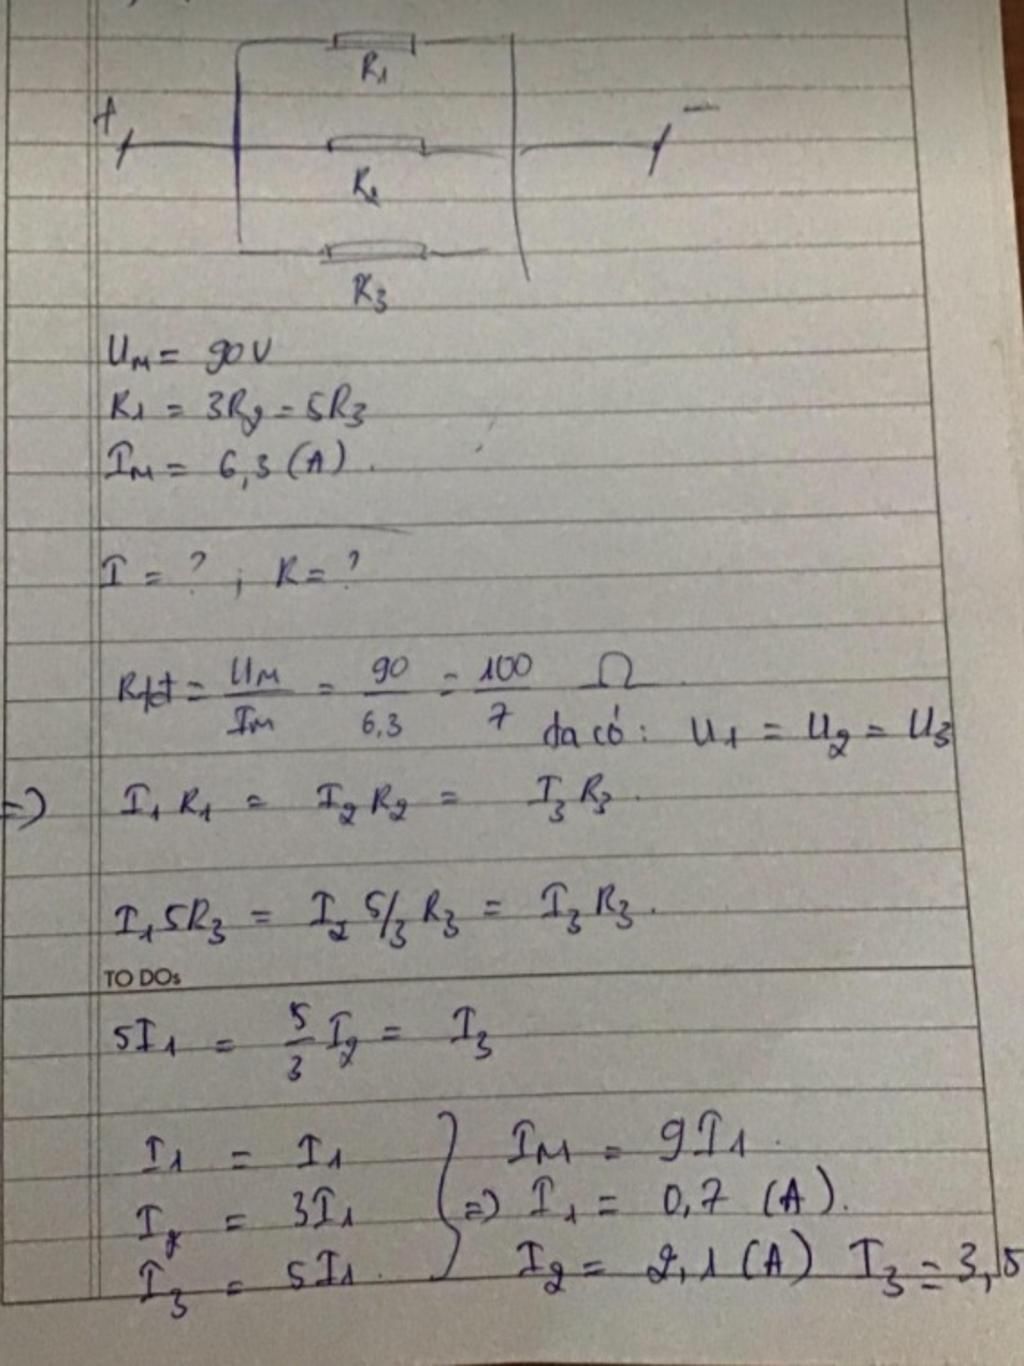 +
R1
−
R2
R3
UM = 90V
R1 = 3R2 = 5R3
IM = 6,3 (A).
I = ? ; R = ?
Rtđ = UM/IM = 90/6,3 = 100/7 Ω
ta có: U1 = U2 = U3
=> I1 R1 = I2 R2 = I3 R3.
I1 5R3 = I2 5/3 R3 = I3 R3.
TO DOs
5I1 = 5/3 I2 = I3
I1 = I1 } IM = 9I1.
I2 = 3I1 => I1 = 0,7 (A).
I3 = 5I1. I2 = 2,1 (A) I3 = 3,5